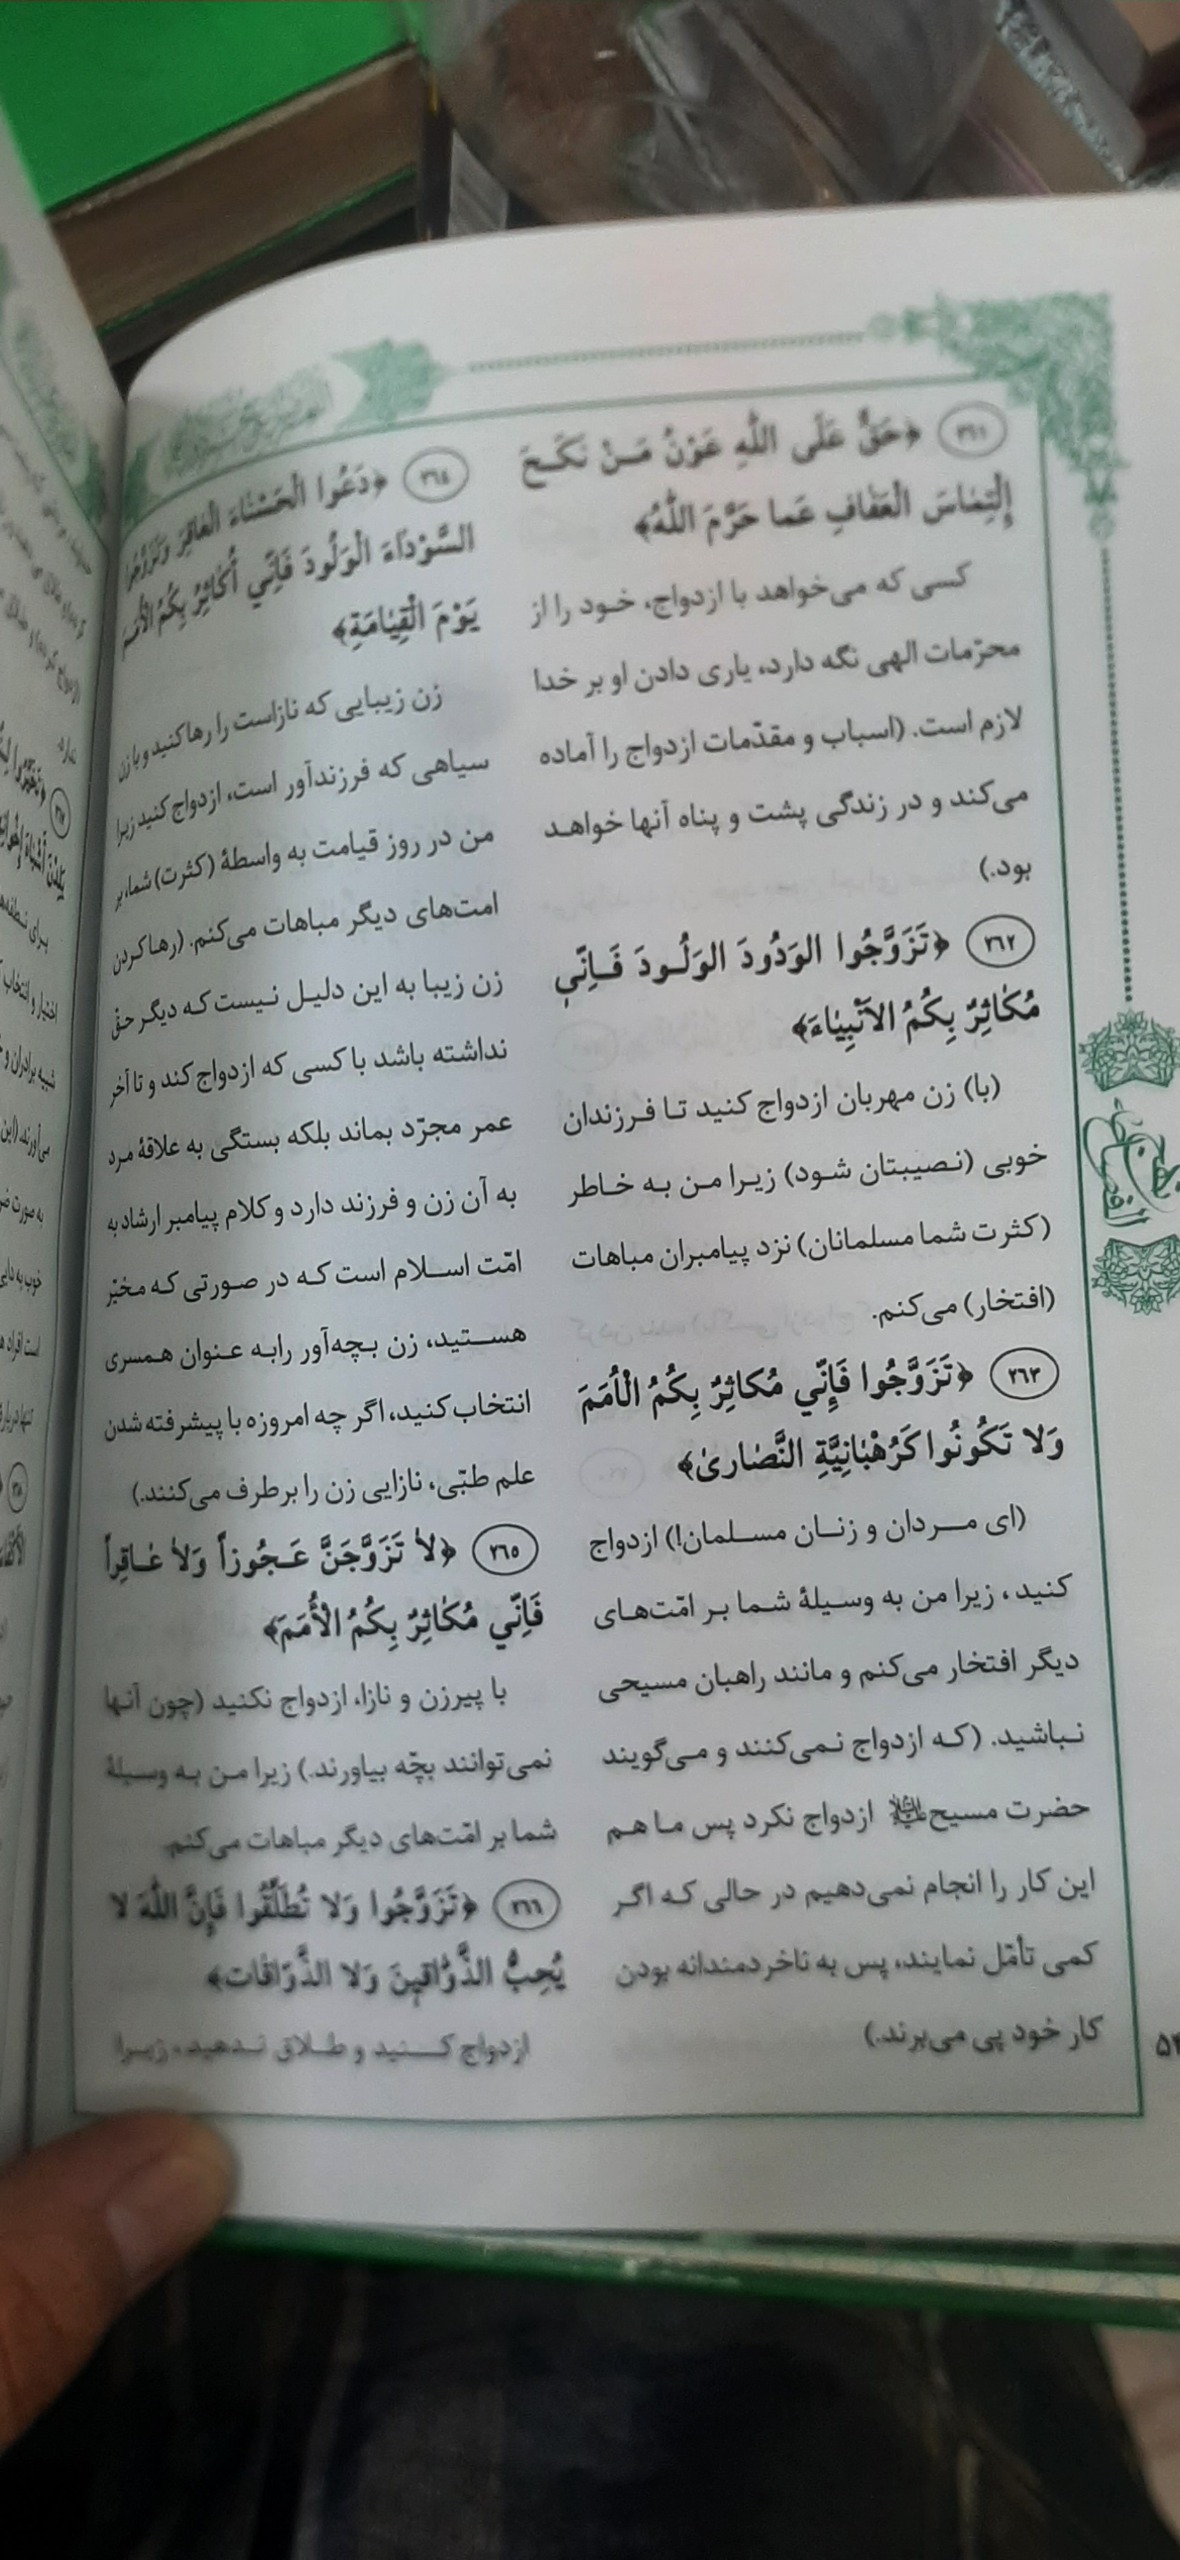 ۳۶۱ ﴿حَقٌّ عَلَی اللّٰهِ عَوْنُ مَـنْ نَکَـحَ
إِلْتِمٰاسَ الْعَفٰافِ عَما حَرَّمَ اللّٰهُ﴾
کسی که می‌خواهد با ازدواج، خود را از
محرّمات الهی نگه دارد، یاری دادن او بر خدا
لازم است. (اسباب و مقدّمات ازدواج را آماده
می‌کند و در زندگی پشت و پناه آنها خواهد
بود.)
۳۶۲ ﴿تَزَوَّجُوا الوَدُودَ الوَلُودَ فَإنّي
مُکٰاثِرٌ بِکُمُ الأَنْبِیٰاءَ﴾
(با) زن مهربان ازدواج کنید تا فرزندان
خوبی (نصیبتان شود) زیرا من به خاطر
(کثرت شما مسلمانان) نزد پیامبران مباهات
(افتخار) می‌کنم.
۳۶۳ ﴿تَزَوَّجُوا فَإِنّي مُکاثِرٌ بِکُمُ الْأُمَمَ
وَلا تَکُونُوا کَرُهْبٰانِیَّةِ النَّصٰاریٰ﴾
(ای مردان و زنان مسلمان!) ازدواج
کنید، زیرا من به وسیلهٔ شما بر امّت‌های
دیگر افتخار می‌کنم و مانند راهبان مسیحی
نباشید. (که ازدواج نمی‌کنند و می‌گویند
حضرت مسیح علیه‌السلام ازدواج نکرد پس ما هم
این کار را انجام نمی‌دهیم در حالی که اگر
کمی تأمّل نمایند، پس به ناخردمندانه بودن
کار خود پی می‌برند.)
۳۶٤ ﴿دَعُوا الْحَسْنٰاءَ الْعٰاقِرَ وَتَزَوَّجُوا
السَّوْدٰاءَ الْوَلُودَ فَإِنّي أُکٰاثِرُ بِکُمُ الأُمَمَ
یَوْمَ الْقِیٰامَةِ﴾
زن زیبایی که نازاست را رها کنید و با زن
سیاهی که فرزندآور است، ازدواج کنید زیرا
من در روز قیامت به واسطهٔ (کثرت) شما، بر
امت‌های دیگر مباهات می‌کنم. (رها کردن
زن زیبا به این دلیل نیست که دیگر حقّ
نداشته باشد با کسی که ازدواج کند و تا آخر
عمر مجرّد بماند بلکه بستگی به علاقهٔ مرد
به آن زن و فرزند دارد و کلام پیامبر ارشاد به
امّت اسلام است که در صورتی که مخیّر
هستید، زن بچه‌آور را به عنوان همسری
انتخاب کنید، اگر چه امروزه با پیشرفته شدن
علم طبّی، نازایی زن را برطرف می‌کنند.)
۳۶٥ ﴿لاٰ تَزَوَّجَنَّ عَجُوزاً وَلاٰ عٰاقِراً
فَإِنّي مُکٰاثِرٌ بِکُمُ الْأُمَمَ﴾
با پیرزن و نازا، ازدواج نکنید (چون آنها
نمی‌توانند بچّه بیاورند.) زیرا من به وسیلهٔ
شما بر امّت‌های دیگر مباهات می‌کنم.
۳۶۶ ﴿تَزَوَّجُوا وَلا تُطَلِّقُوا فَإِنَّ اللّٰهَ لا
یُحِبُّ الذَّوّٰاقینَ وَلا الذَّوّٰاقٰات﴾
ازدواج کنید و طلاق ندهید، زیرا
نهج الفصاحه